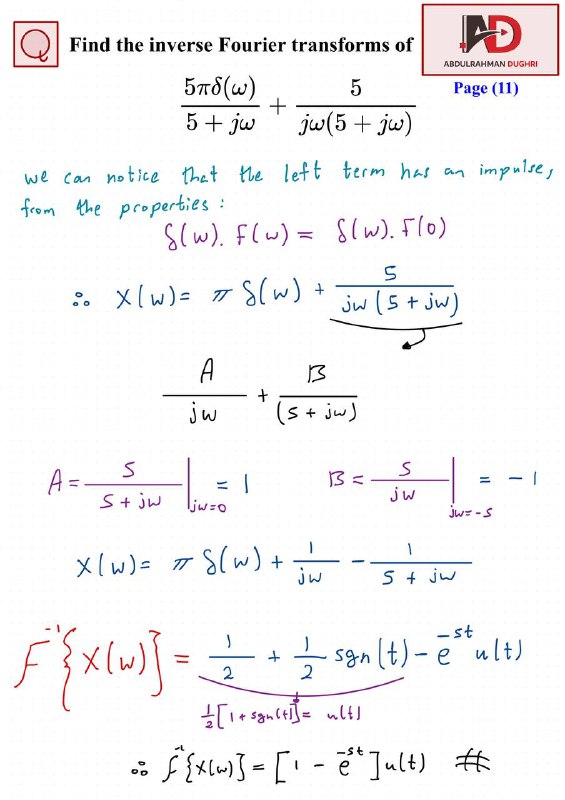 Q Find the inverse Fourier transforms of
AD
ABDULRAHMAN DUGHRI
Page (11)
5πδ(ω)/(5 + jω) + 5/(jω(5 + jω))
we can notice that the left term has an impulse,
from the properties:
δ(ω). F(ω) = δ(ω). F(0)
∴ X(ω) = π δ(ω) + 5/(jω(5 + jω))
A/jω + B/(5 + jω)
A = 5/(5 + jω) |jω=0 = 1 B = 5/jω |jω=-5 = -1
X(ω) = π δ(ω) + 1/jω - 1/(5 + jω)
F⁻¹{X(ω)} = 1/2 + 1/2 sgn(t) - e^-5t u(t)
1/2 [1 + sgn(t)] = u(t)
∴ F⁻¹{X(ω)} = [1 - e^-5t] u(t) #